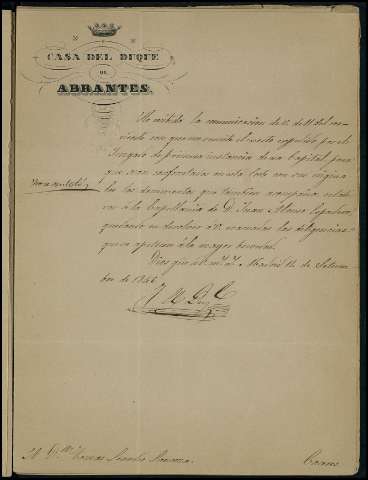 CASA DEL DUQUE
DE
ABRANTES.
He recibido la comunicacion de V. de 11 del cor-
riente con que me remite el exorto espedido por el
Juzgado de primera instancia de esa Capital para
que sean confrontados en esta Corte con sus origina-
les los documentos que tambien acompaña relati-
vos á la Capellania de D. Juan Alonso
quedando en devolver á V. evacuadas las diligencias
que se apetecen á la mayor brevedad.
Dios gue. á V. ms. as. Madrid 14 de Setiem-
bre de 1846
S. D.n Tomas Sancho
Caceres